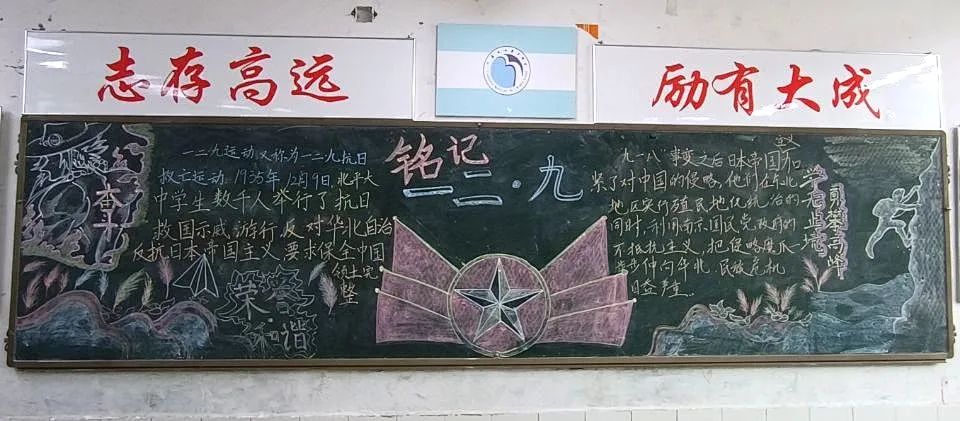 志存高远
励有大成
铭记
一二·九
一二九运动又称为一二九抗日
救亡运动,1935年12月9日,北平大
中学生数千人举行了抗日
救国示威游行反对华北自治
反抗日本帝国主义要求保全中国
领土完
整
荣
和谐
"九一八"事变之后日本帝国加
紧了对中国的侵略,他们在东北
地区实行殖民地化统治的
同时,利用南京国民党政府的
不抵抗主义,把侵略魔爪
逐步伸向华北,民族危机
日益严重
学无止境
勇攀高峰